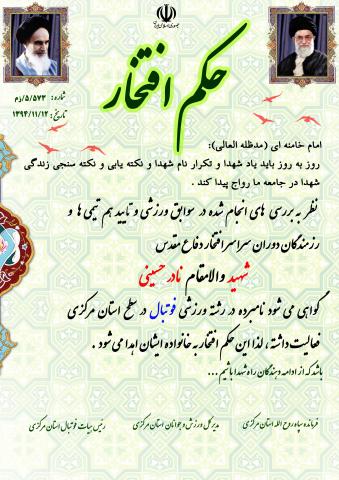 جمهوری اسلامی ایران
حکم افتخار
شماره : ۵/۵۷۳/زم
تاریخ : ۱۳۹۴/۱۱/۱۲
امام خامنه ای (مدظله العالی):
روز به روز باید یاد شهدا و تکرار نام شهدا و نکته یابی و نکته سنجی زندگی
شهدا در جامعه ما رواج پیدا کند .
نظر به بررسی های انجام شده در سوابق ورزشی و تایید هم تیمی ها و
رزمندگان دوران سراسر افتخار دفاع مقدس
شهید والامقام نادر حسینی
گواهی می شود نامبرده در رشته ورزشی فوتبال در سطح استان مرکزی
فعالیت داشته ، لذا این حکم افتخار به خانواده ایشان اهدا می شود .
باشد که از ادامه دهندگان راه شهدا باشیم ...
فرمانده سپاه روح الله استان مرکزی
مدیر کل ورزش و جوانان استان مرکزی
رئیس هیات فوتبال استان مرکزی